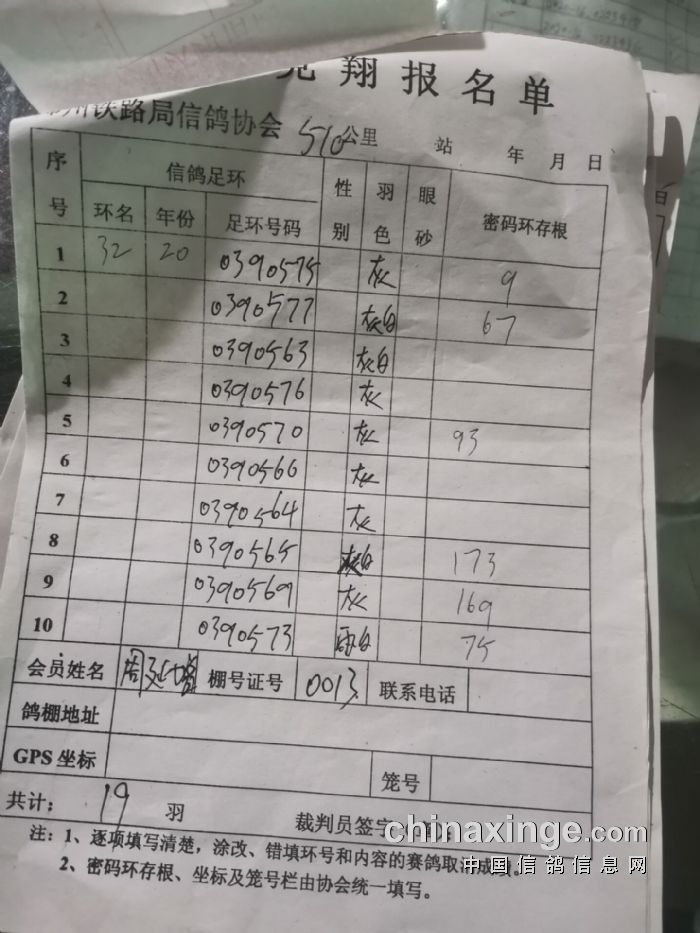 翔报名单
铁路局信鸽协会 510公里 站 年 月 日
序号 信鸽足环 性别 羽色 眼砂 密码环存根
环名 年份 足环号码
1 32 20 0390575 灰 9
2 0390577 灰白 67
3 0390563 灰白
4 0390576 灰
5 0390570 灰 93
6 0390566 灰
7 0390564 灰
8 0390565 白 173
9 0390569 灰 169
10 0390573 雨白 75
会员姓名 周 棚号证号 0013 联系电话
鸽棚地址
GPS 坐标 笼号
共计: 19 羽 裁判员签字
注: 1、逐项填写清楚,涂改、错填环号和内容的赛鸽取消成绩。
2、密码环存根、坐标及笼号栏由协会统一填写。
chinaxinge.com
中国信鸽信息网